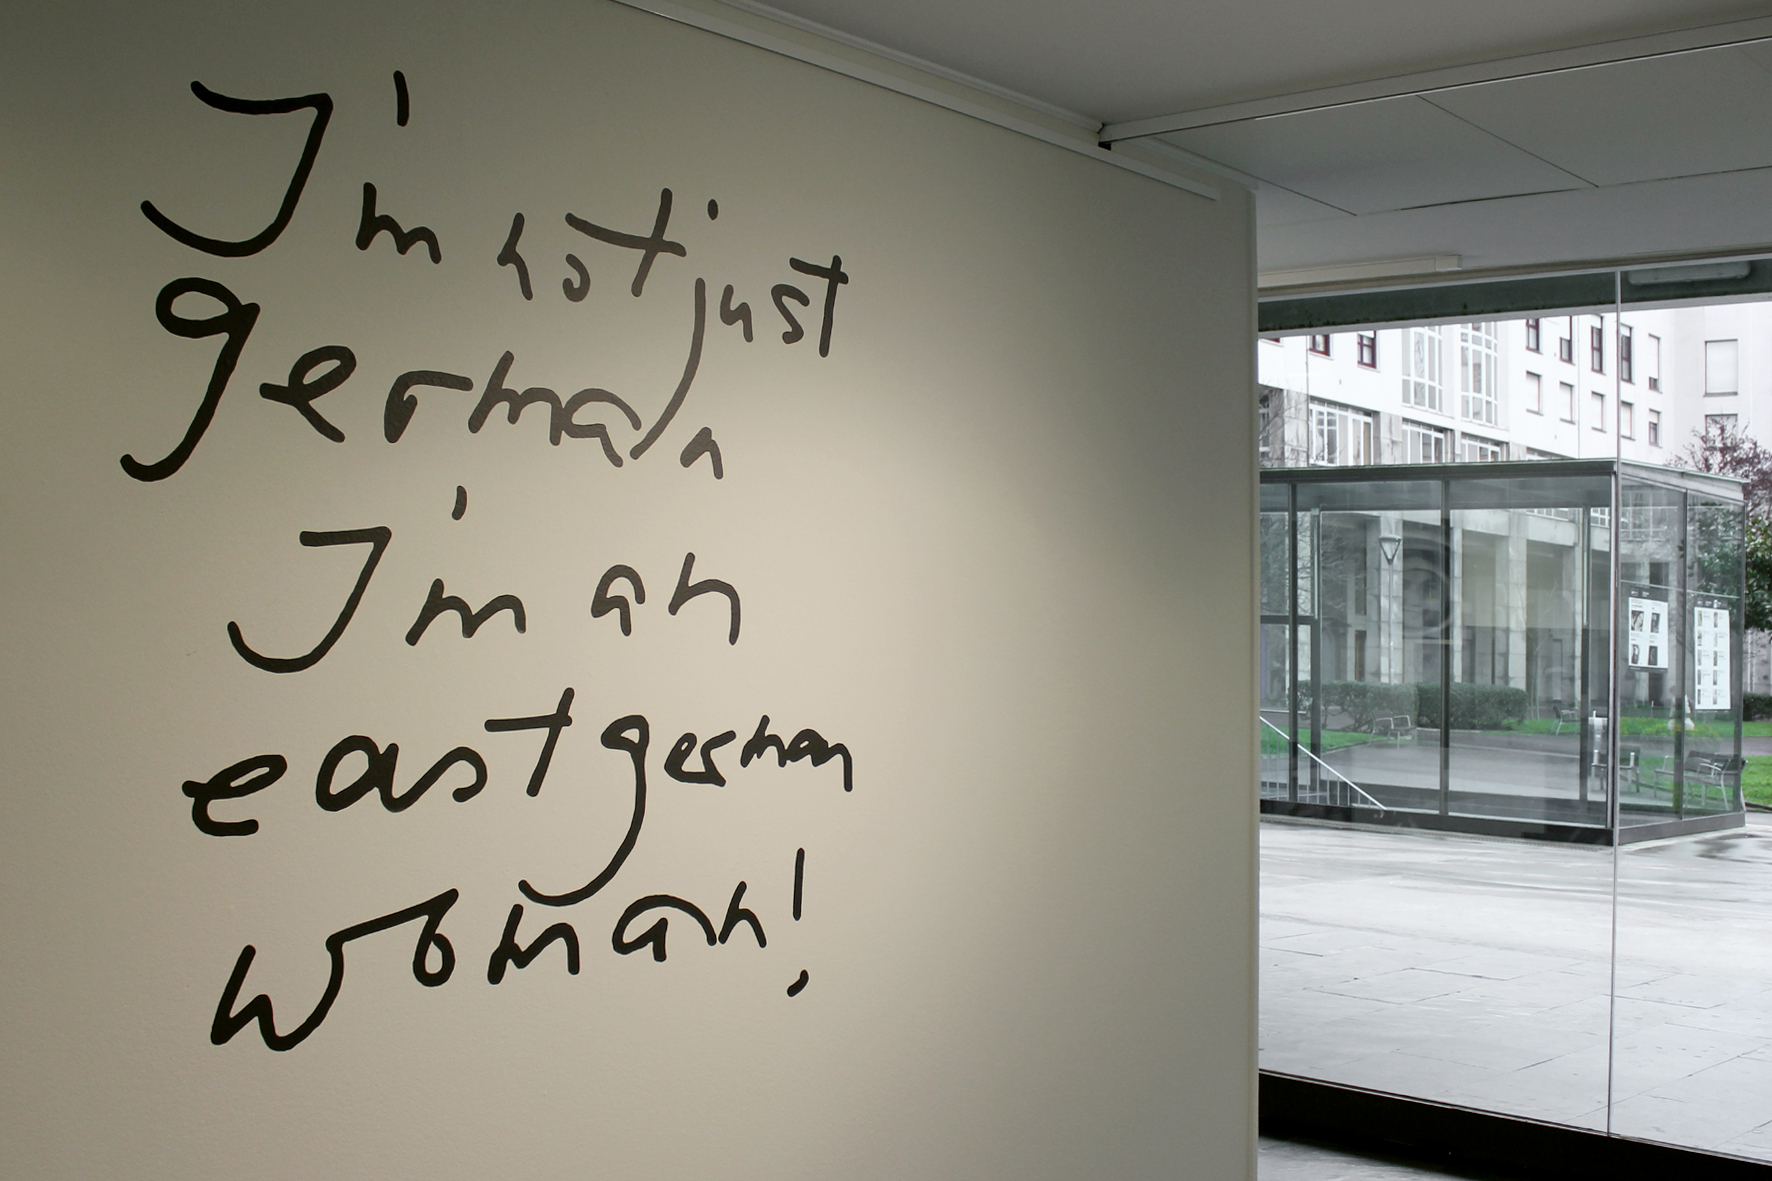 I'm not just
german
I'm an
east german
woman!